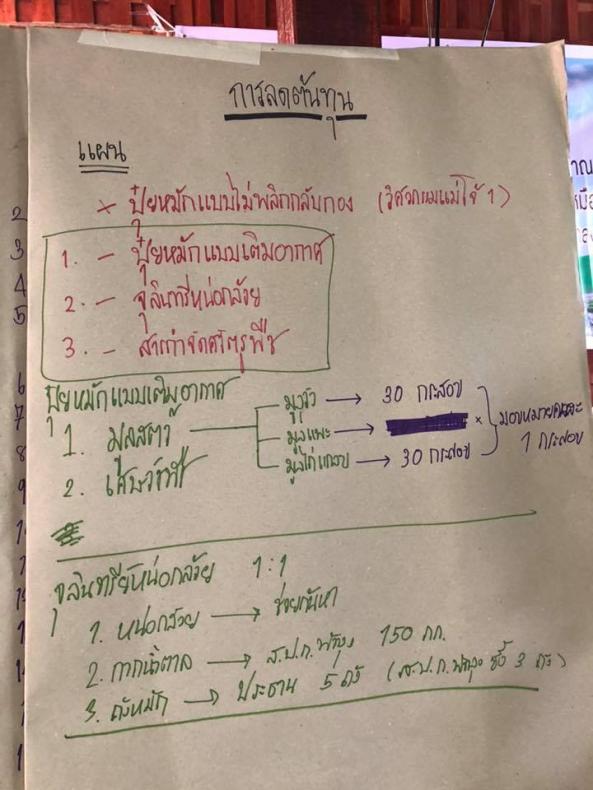 การลดต้นทุน
แผน
× ปุ๋ยหมักแบบไม่พลิกกลับกอง (วิศวกรรมแม่โจ้ 1)
1. - ปุ๋ยหมักแบบเติมอากาศ
2. - จุลินทรีย์หน่อกล้วย
3. - สารกำจัดศัตรูพืช
ปุ๋ยหมักแบบเติมอากาศ
1. มูลสัตว์
มูลวัว → 30 กระสอบ
มูลแพะ → ×
มูลไก่แกลบ → 30 กระสอบ
มอบหมายคนละ
1 กระสอบ
2. เศษวัชพืช
จุลินทรีย์หน่อกล้วย 1:1
1. หน่อกล้วย → ช่วยกันหา
2. กากน้ำตาล → ส.ป.ก.พัทลุง 150 กก.
3. ถังหมัก → ประธาน 5 ถัง (ส.ป.ก.พัทลุง ซื้อ 3 ถัง)
2
3
4
5
6
7
8
9